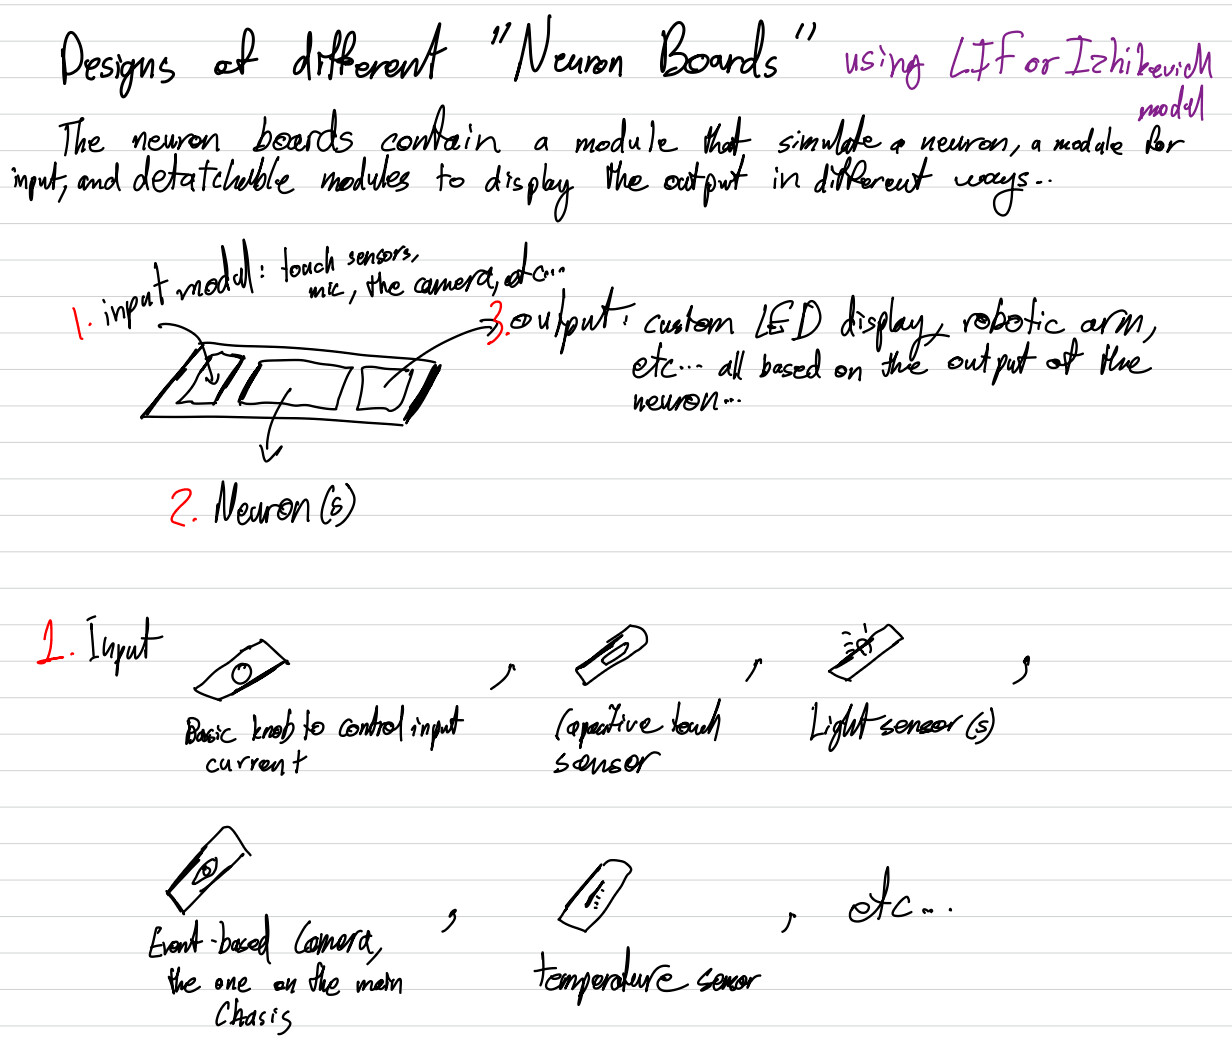 Designs of different "Neuron Boards" using LIF or Izhikevich
model
The neuron boards contain a module that simulate a neuron, a module for
input, and detatchable modules to display the output in different ways...
1. input modal: touch sensors,
mic, the camera, etc...
3. output: custom LED display, robotic arm,
etc... all based on the output of the
neuron...
2. Neuron(s)
1. Input
Basic knob to control input
current
,
Capacitive touch
sensor
,
Light sensor(s)
,
Event-based Camera,
the one on the main
Chasis
,
temperature sensor
,
etc...